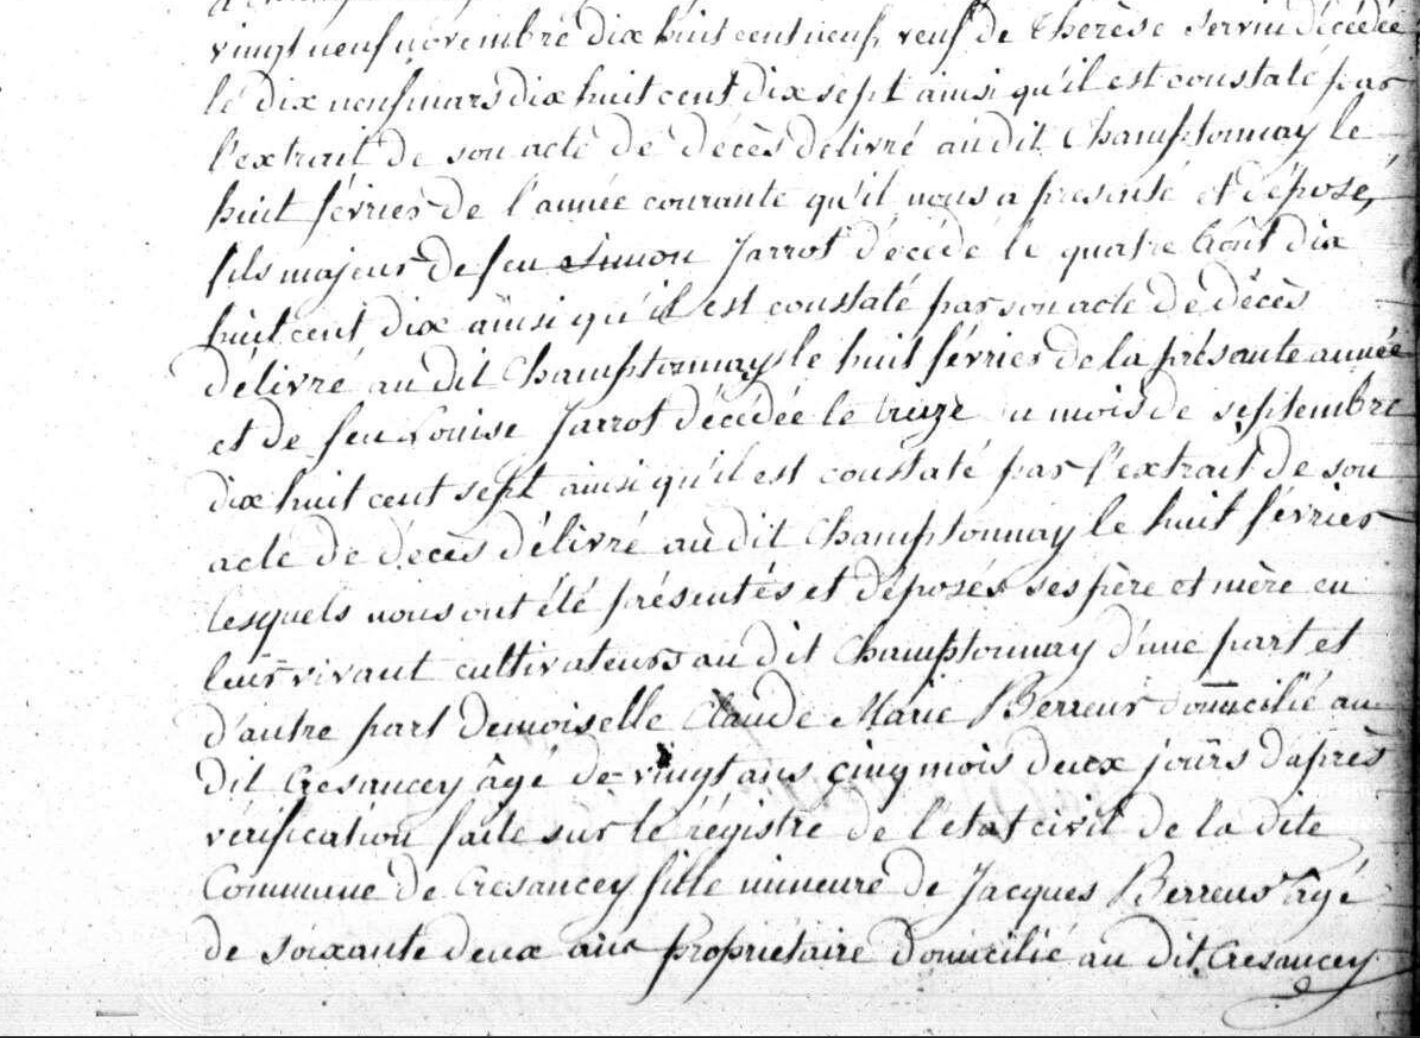 vingt neuf novembre dix huit cent neuf, veuf de Therèse Servin décédée
le dix neuf mars dix huit cent dix sept ainsi qu'il est constaté par
l'extrait de son acte de décès delivré au dit Champtonnay le
huit février de l'année courante qu'il nous a presenté et déposé,
fils majeur de feu Simon Jarrot décédé le quatre Août dix
huit cent dix ainsi qu'il est constaté par son acte de décès
délivré au dit Champtonnay le huit février de la présente année
et de feu Louise Jarrot décédée le treize du mois de septembre
dix huit cent sept ainsi qu'il est constaté par l'extrait de son
acte de décès délivré au dit Champtonnay le huit février
lesquels nous ont été présentés et déposés ses père et mère en
leur vivant cultivateurs au dit Champtonnay d'une part et
d'autre part Demoiselle Claude Marie Berreur domicilié au
dit Cresancey âgé de vingt ans cinq mois deux jours d'après
vérification faite sur le régistre de l'état civil de la dite
Commune de Cresancey fille mineure de Jacques Berreur âgé
de soixante deux ans propriétaire domicilié au dit Cresancey